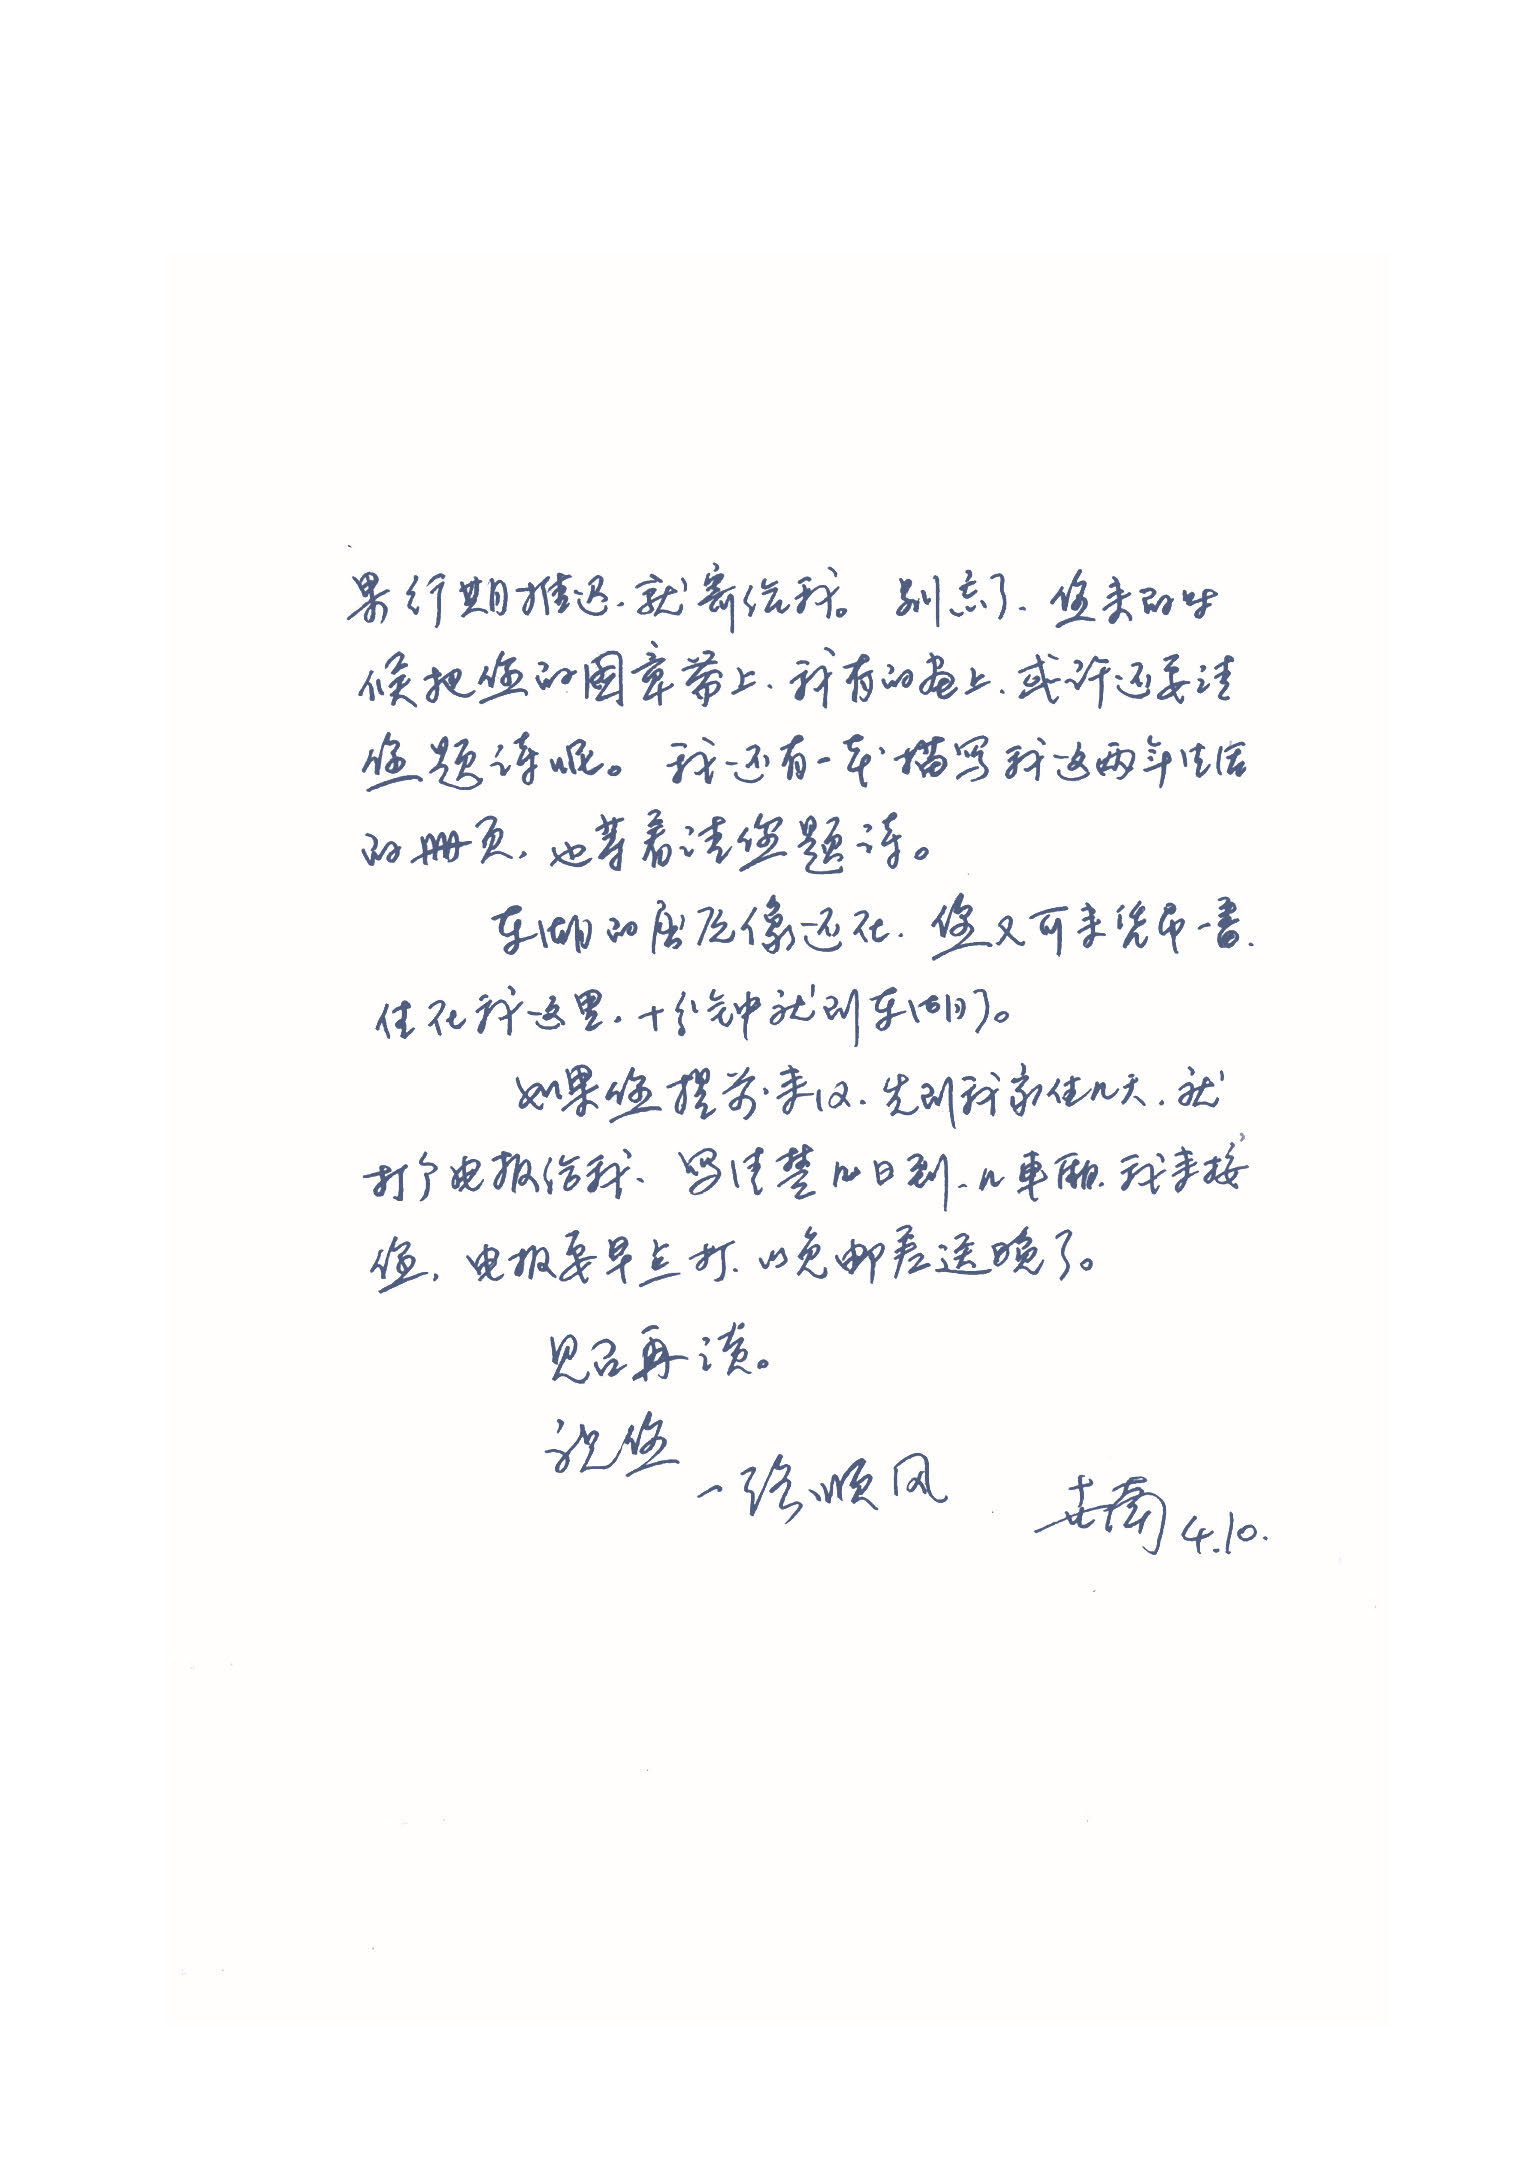 果行期推迟，就寄给我。别忘了，您来的时
候把您的图章带上，我有的画上，或许还要请
您题诗呢。我还有一本描写我这两年生活
的册页，也等着请您题诗。
东湖的屈原像还在，您又可来凭吊一番，
住在我这里，十分钟就到东湖了。
如果您提前来汉，先到我家住几天，就
打个电报给我，写清楚几日到，几車厢，我来接
您，电报要早点打，以免邮差送晚了。
见面再谈。
祝您
一路顺风
世南 4.10.